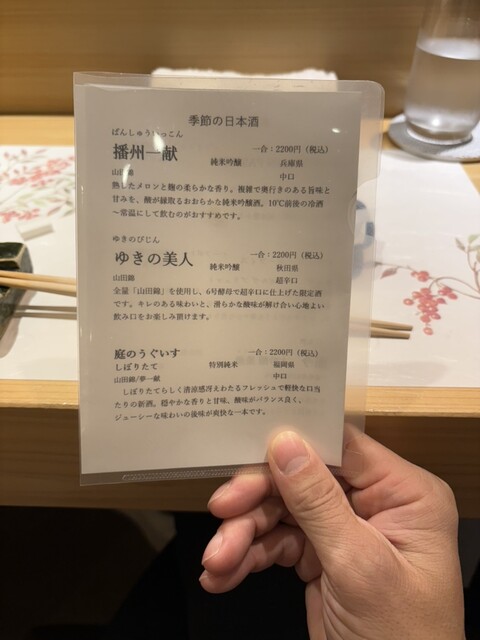 季節の日本酒
ばんしゅういっこん
播州一献 純米吟醸 一合：2200円（税込）
兵庫県
山田錦 中口
熟したメロンと麹の柔らかな香り。複雑で奥行きのある旨味と
甘みを、酸が縁取るおおらかな純米吟醸酒。10℃前後の冷酒
～常温にして飲むのがおすすめです。
ゆきのびじん
ゆきの美人 純米吟醸 一合：2200円（税込）
秋田県
山田錦 超辛口
全量「山田錦」を使用し、6号酵母で超辛口に仕上げた限定酒
です。キレのある味わいと、滑らかな酸味が解け合い心地よい
飲み口をお楽しみ頂けます。
庭のうぐいす 一合：2200円（税込）
しぼりたて 特別純米 福岡県
山田錦/夢一献 中口
しぼりたてらしく清涼感冴えわたるフレッシュで軽快な口当
たりの新酒。穏やかな香りと甘味、酸味がバランス良く、
ジューシーな味わいの後味が爽快な一本です。